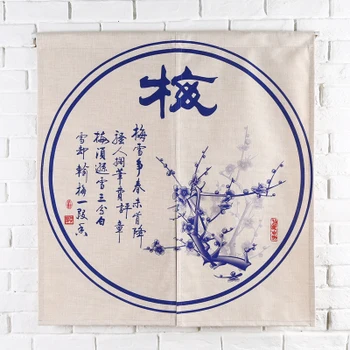 梅
梅雪争春未肯降
骚人搁笔费评章
梅须逊雪三分白
雪却输梅一段香